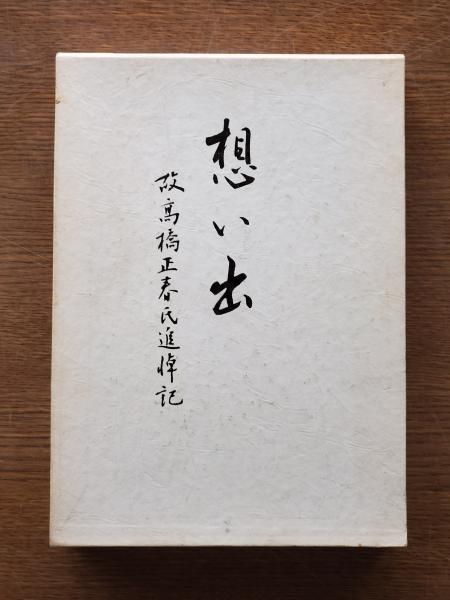 想い出
故高橋正春氏追悼記